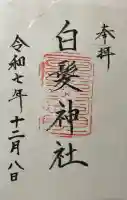 奉拝
白髪神社
令和七年十二月八日